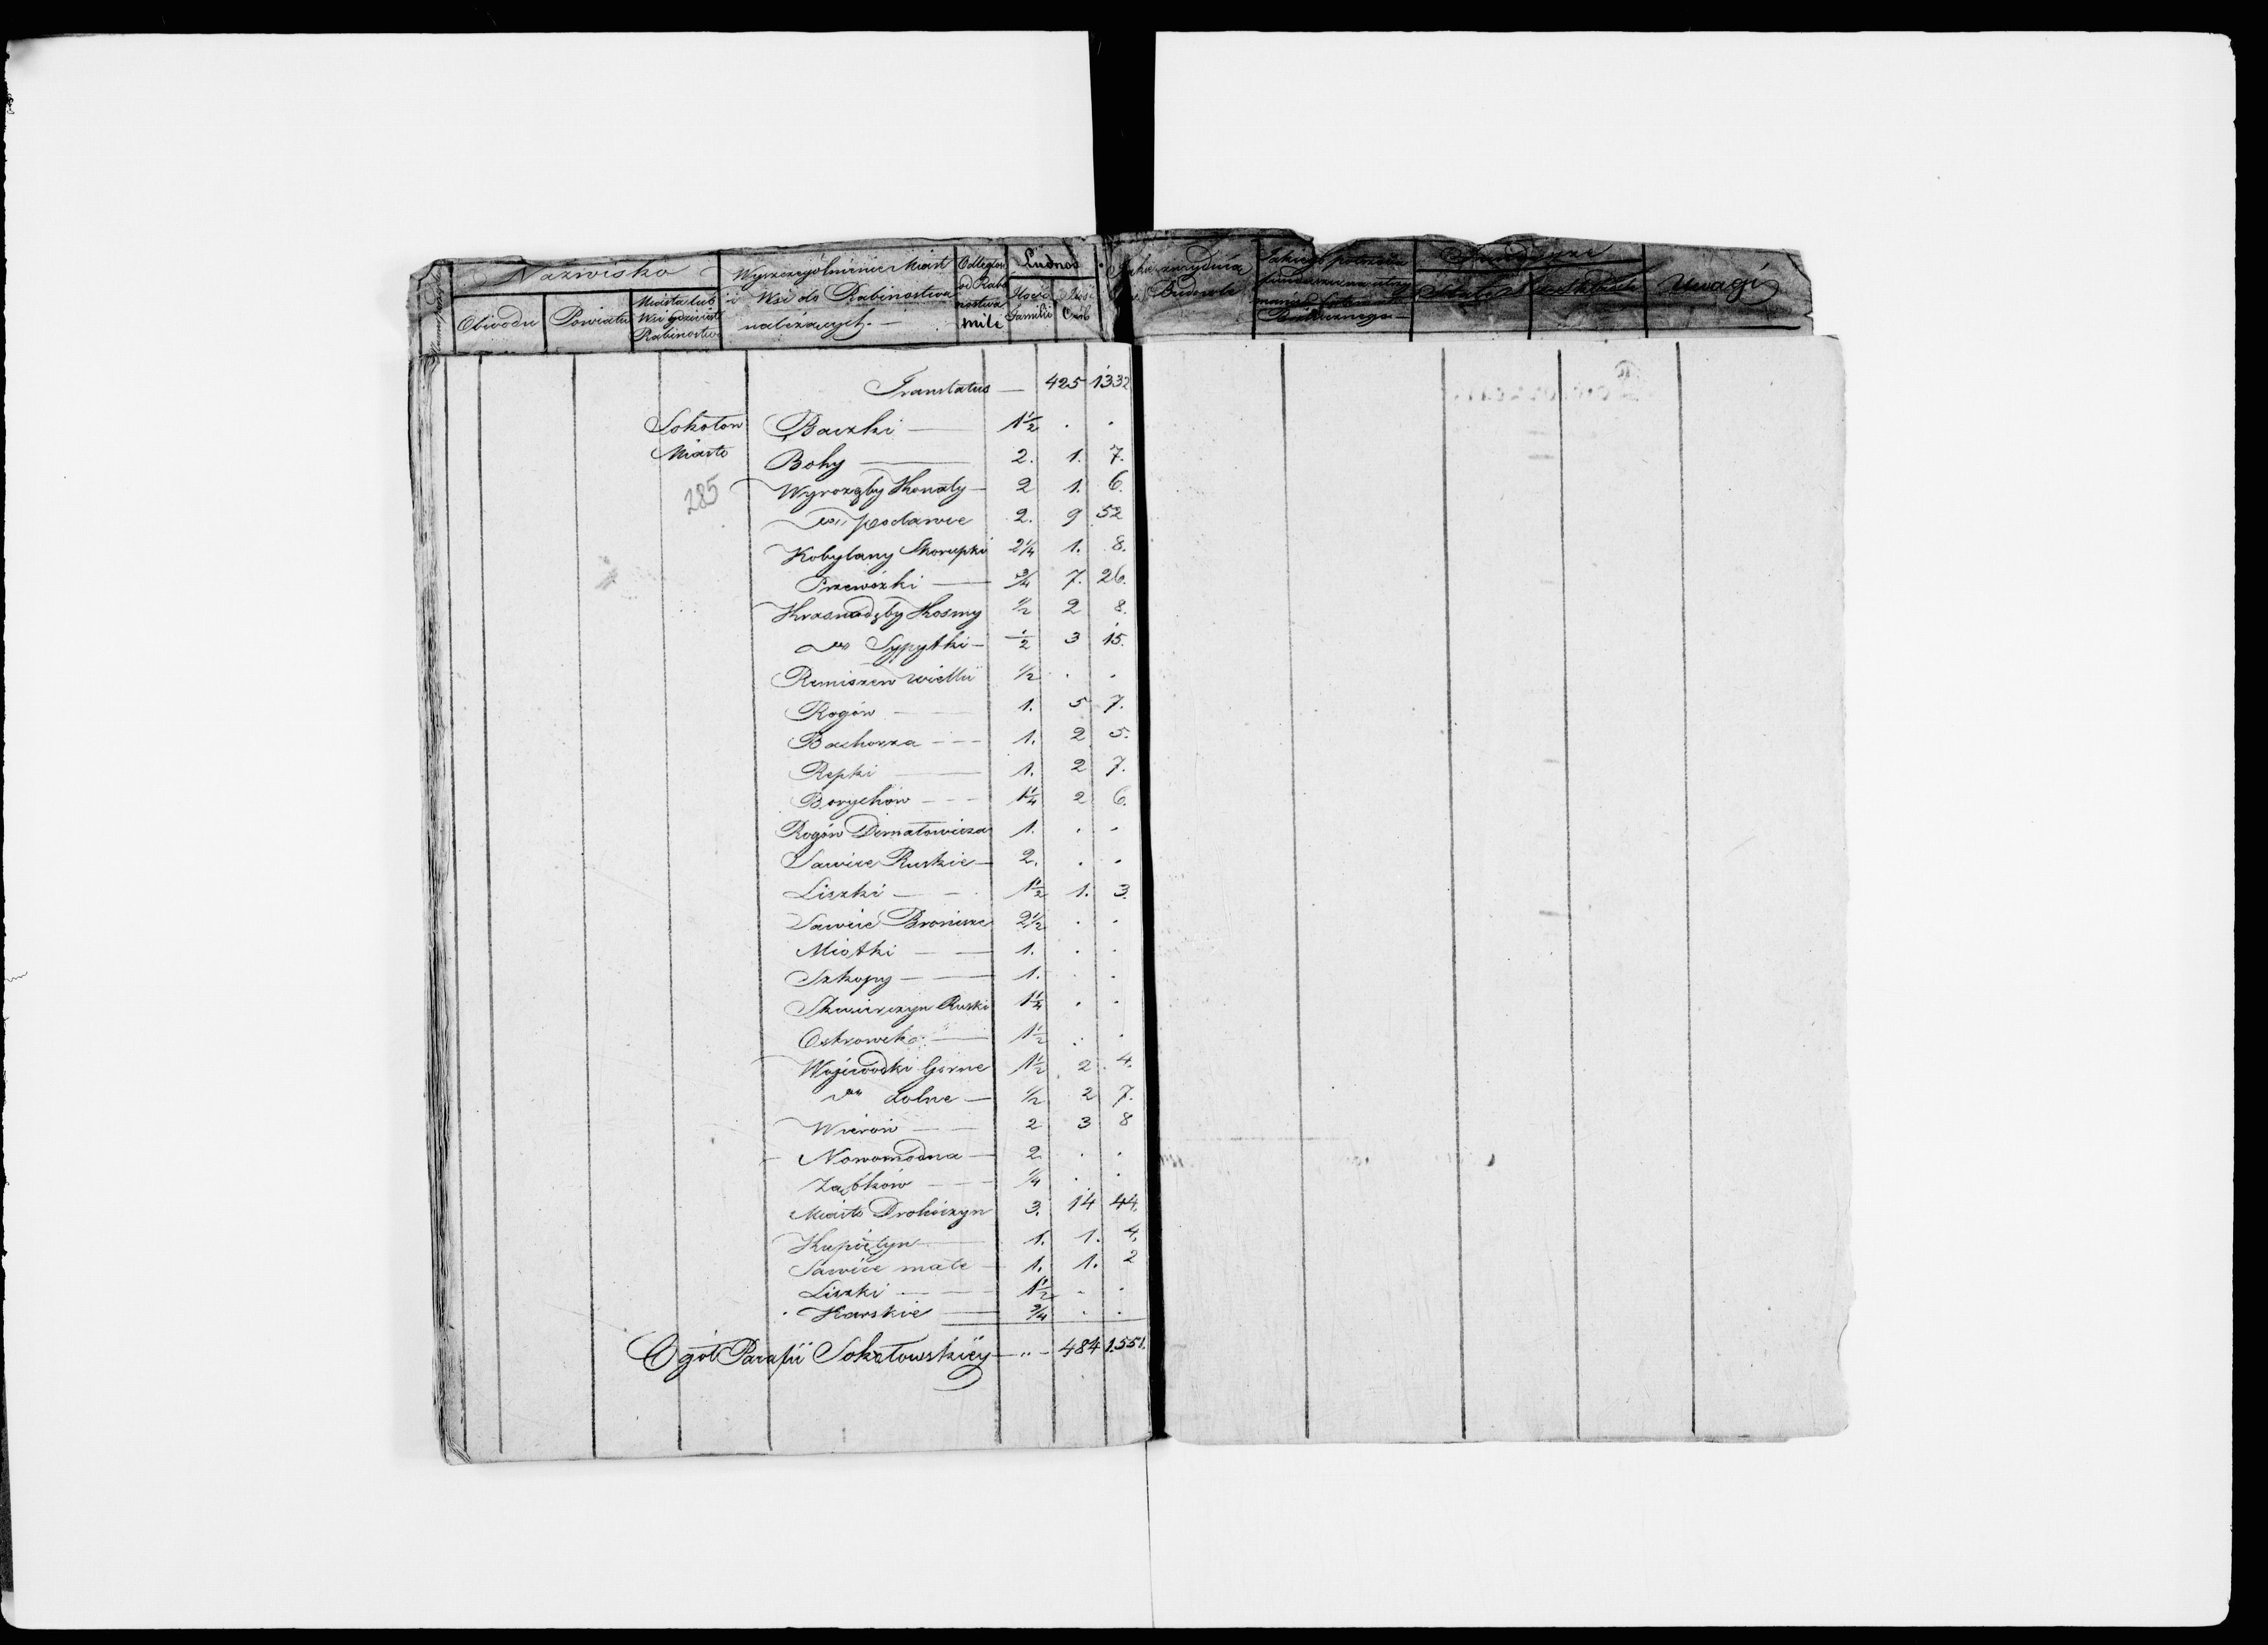 Nazwisko
Obwodu Powiatu Miasta lub Wsi gdzie jest Rabinostwo
Wyszczególnienie Miast i Wsi do Rabinostwa należących.
Odległość od Rabinostwa mile
Ludność
Ilość Familii Ilość Osób
Budowle
Fundusze
Stałe
Uwagi
Translatus — 425 1332
Sokołow Baczki — 1½ . .
Miasto Bohy — 2. 1. 7.
285 Wyrozęby Konaty — 2 1. 6.
podawce 2. 9 52
Kobylany Skorupki 2¼ 1. 8.
Przewózki — ¾ 7. 26.
Krasnodęby Kosmy ½ 2 8.
Sypytki — ½ 3 15.
Remiszew wielki ½ . .
Rogów — 1. 5 7.
Bachorza — 1. 2 5.
Repki — 1. 2 7.
Borychów — 1¼ 2 6.
Rogów Dernałowicza 1. . .
Sawice Ruskie — 2. . .
Liszki — 1½ 1. 3.
Sawice Bronisze 2½ . .
Miotki — 1. . .
Szkopy — 1. . .
Skwierczyn Ruski 1¼ . .
Ostrowek — 1½ . .
Wojewódki Górne 1½ 2 4.
Dolne — ½ 2 7.
Wierów — 2 3 8
Nowomodna — 2 . .
Ząbków — ¼ . .
Miasto Drohiczyn 3. 14 44.
Kupiętyn — 1. 1. 4.
Sawice małe — 1. 1. 2
Liszki — 1½ . .
Karskie — ¾ . .
Ogół Parafii Sokołowskiey — 484 1.551.